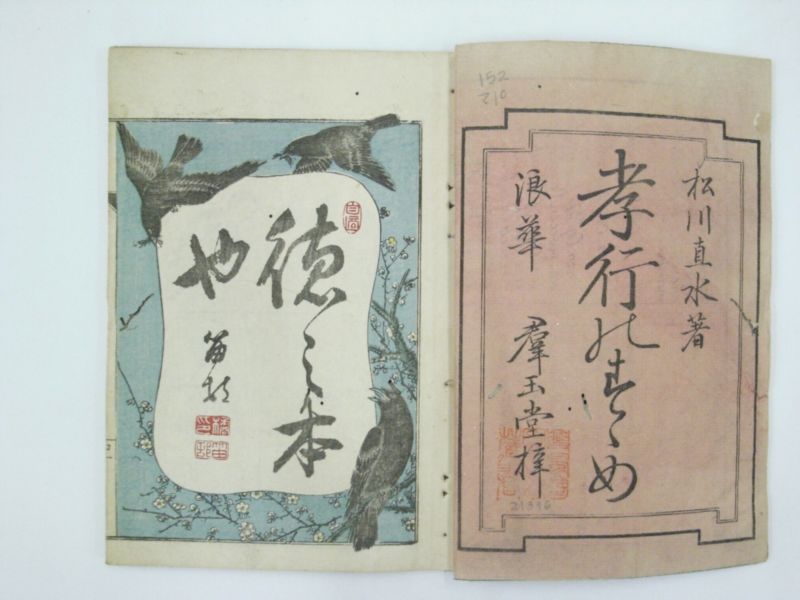 152
210
松川直水著
孝行のすゝめ
浪華 羣玉堂梓
21396
徳之本
也